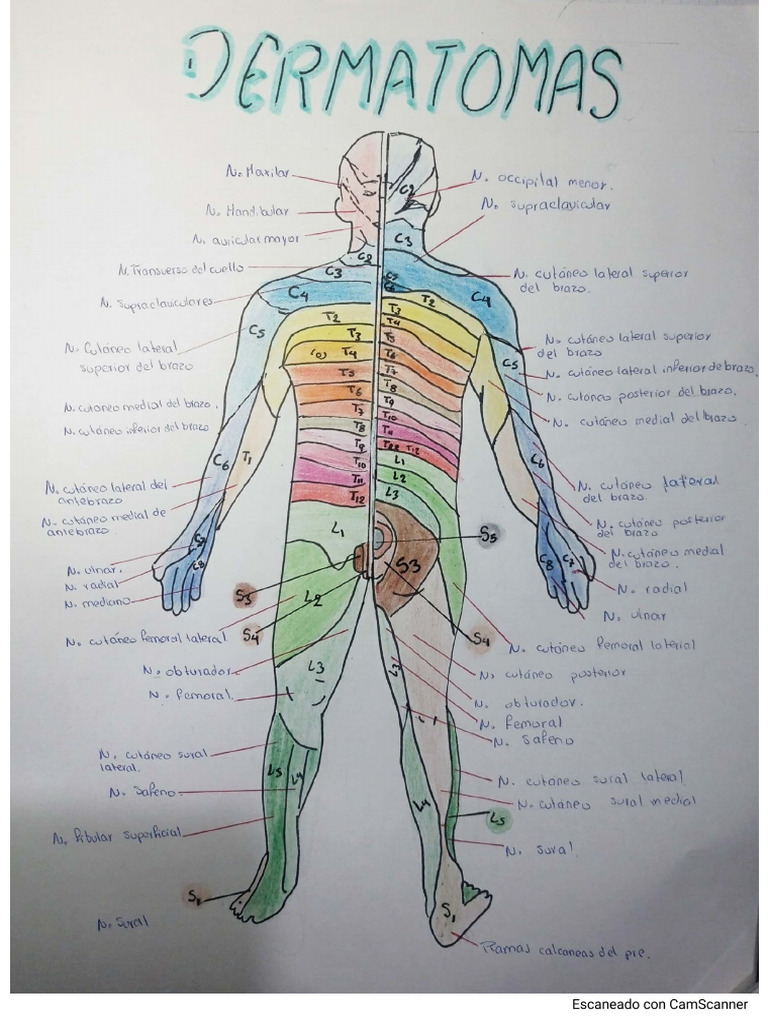 DERMATOMAS
N. Maxilar
N. Mandibular
N. auricular mayor
N. Transverso del cuello
N. Supraclaviculares
N. Cutáneo lateral
superior del brazo
N. cutaneo medial del brazo.
N. cutáneo inferior del brazo
N. cutáneo lateral del
antebrazo
N. cutáneo medial de
antebrazo.
N. ulnar.
N. radial
N. mediano
N. cutáneo femoral lateral
N. obturador
N. femoral.
N. cutáneo sural
lateral.
N. Safeno
N. fibular superficial
N. Sural
C2
C3
C4
C5
T2
T3
T4
T5
T6
T7
T8
T9
T10
T11
T12
C6
T1
C8
L1
L2
L3
S3
S4
L5
L4
S1
C2
C3
C4
T2
T3
T4
T5
T6
T7
T8
T9
T10
T11
T12
L1
L2
L3
C5
C6
C8
C7
S5
S3
S4
L3
L4
L5
S1
N. occipital menor.
N. supraclavicular
N. cutáneo lateral superior
del brazo.
N. cutáneo lateral superior
del brazo
N. cutáneo lateral inferior de brazo.
N. cutáneo posterior del brazo.
N. cutáneo medial del brazo.
N. cutáneo lateral
del brazo.
N. cutáneo posterior
del brazo
N. cutáneo medial
del brazo.
N. radial
N. ulnar
N. cutáneo femoral lateral
N. cutáneo posterior
N. obturador.
N. femoral
N. Safeno
N. cutáneo sural lateral
N. cutáneo sural medial
N. sural
Ramas calcaneas del pie.
Escaneado con CamScanner